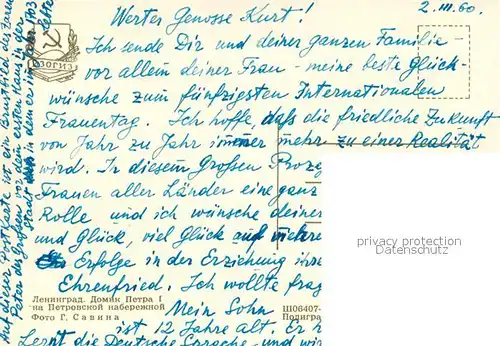 2. III. 60.
Werter Genosse Kurt!
Ich sende Dir und deiner ganzen Familie -
vor allem deiner Frau - meine beste Glück-
wünsche zum fünfzigsten Internationalen
Frauentag. Ich hoffe, daß die friedliche Zukunft
von Jahr zu Jahr immer mehr zu einer Realität
wird. In diesem großen Proze
Frauen aller Länder eine ganz
Rolle und ich wünsche deiner
und Glück, viel Glück und mehrere
Erfolge in der Erziehung ihre
Ehrenfried. Ich wollte frag
Mein Sohn
ist 12 Jahre alt. Er h
Lernt die Deutsche Sprache und wi
Auf dieser Postkarte ist ein Brustbild des Zaren
Peter des Großen vor dem ersten Haus in der
Stadt in dem er im Jahre 1703
lebte
ИЗОГИЗ
Ленинград. Домик Петра I
на Петровской набережной
Фото Г. Савина
Ш06407-
Полигра
privacy protection
Datenschutz